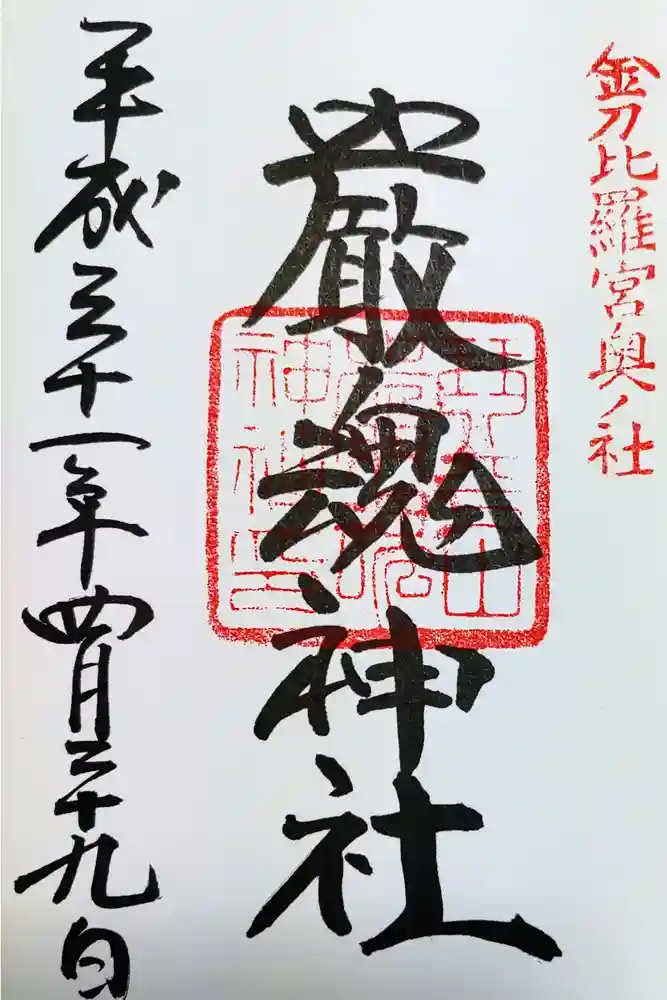 金刀比羅宮奥ノ社
厳魂神社
平成三十一年四月二十九日
神社印